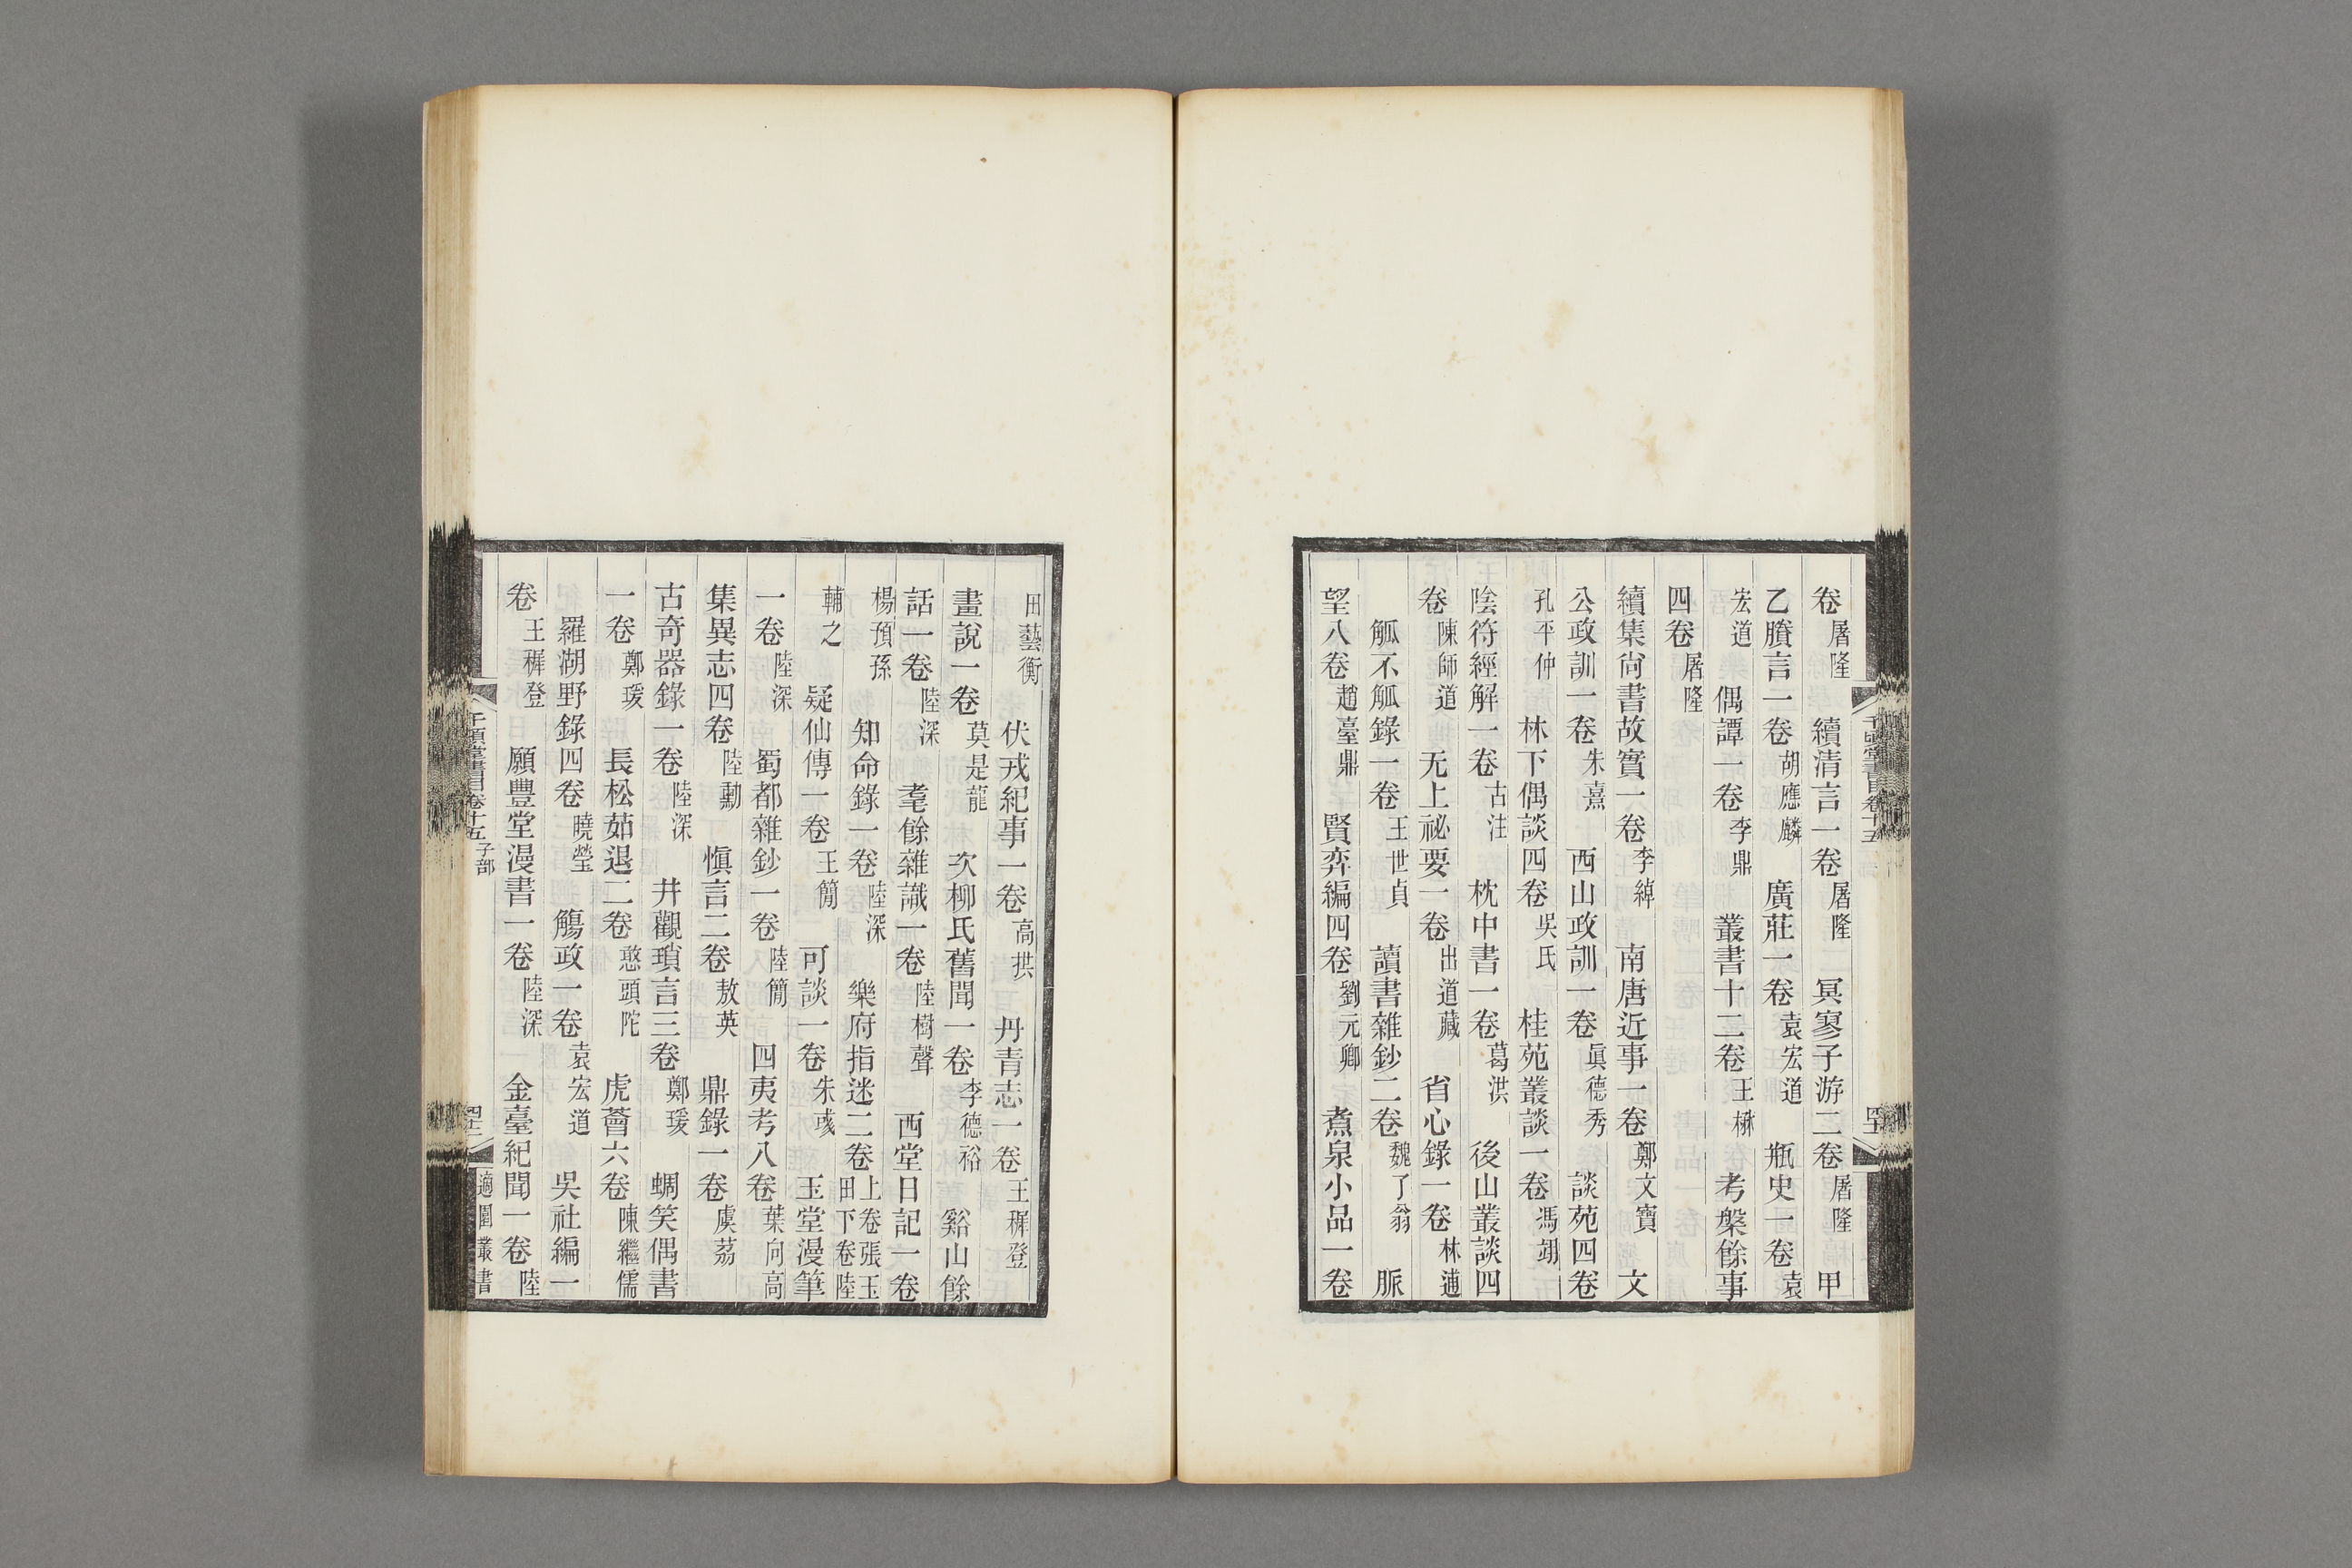 卷屠隆 續清言一卷屠隆 冥寥子游二卷屠隆 甲
乙賸言一卷胡應麟 廣莊一卷袁宏道 瓶史一卷袁
宏道 偶譚一卷李鼎 叢書十二卷王 考槃餘事
四卷屠隆
續集尙書故實一卷李綽 南唐近事一卷鄭文寶 文
公政訓一卷朱熹 西山政訓一卷眞德秀 談苑四卷
孔平仲 林下偶談四卷吳氏 桂苑叢談一卷馮翊
陰符經解一卷古注 枕中書一卷葛洪 後山叢談四
卷陳師道 无上祕要一卷出道藏 省心錄一卷林逋
觚不觚錄一卷王世貞 讀書雜鈔二卷魏了翁 脈
望八卷趙臺鼎 賢弈編四卷劉元卿 煮泉小品一卷
田藝衡 伏戎紀事一卷高拱 丹青志一卷王穉登
畫說一卷莫是龍 次柳氏舊聞一卷李德裕 谿山餘
話一卷陸深 耄餘雜識一卷陸樹聲 西堂日記一卷
楊預孫 知命錄一卷陸深 樂府指迷二卷上卷張玉田下卷陸
輔之 疑仙傳一卷王簡 可談一卷朱彧 玉堂漫筆
一卷陸深 蜀都雜鈔一卷陸簡 四夷考八卷葉向高
集異志四卷陸勳 愼言二卷敖英 鼎錄一卷虞荔
古奇器錄一卷陸深 井觀瑣言三卷鄭瑗 蜩笑偶書
一卷鄭瑗 長松茹退二卷憨頭陀 虎薈六卷陳繼儒
羅湖野錄四卷曉瑩 觴政一卷袁宏道 吳社編一
卷王穉登 願豐堂漫書一卷陸深 金臺紀聞一卷陸
千頃堂書目卷十五 子部
適園叢書